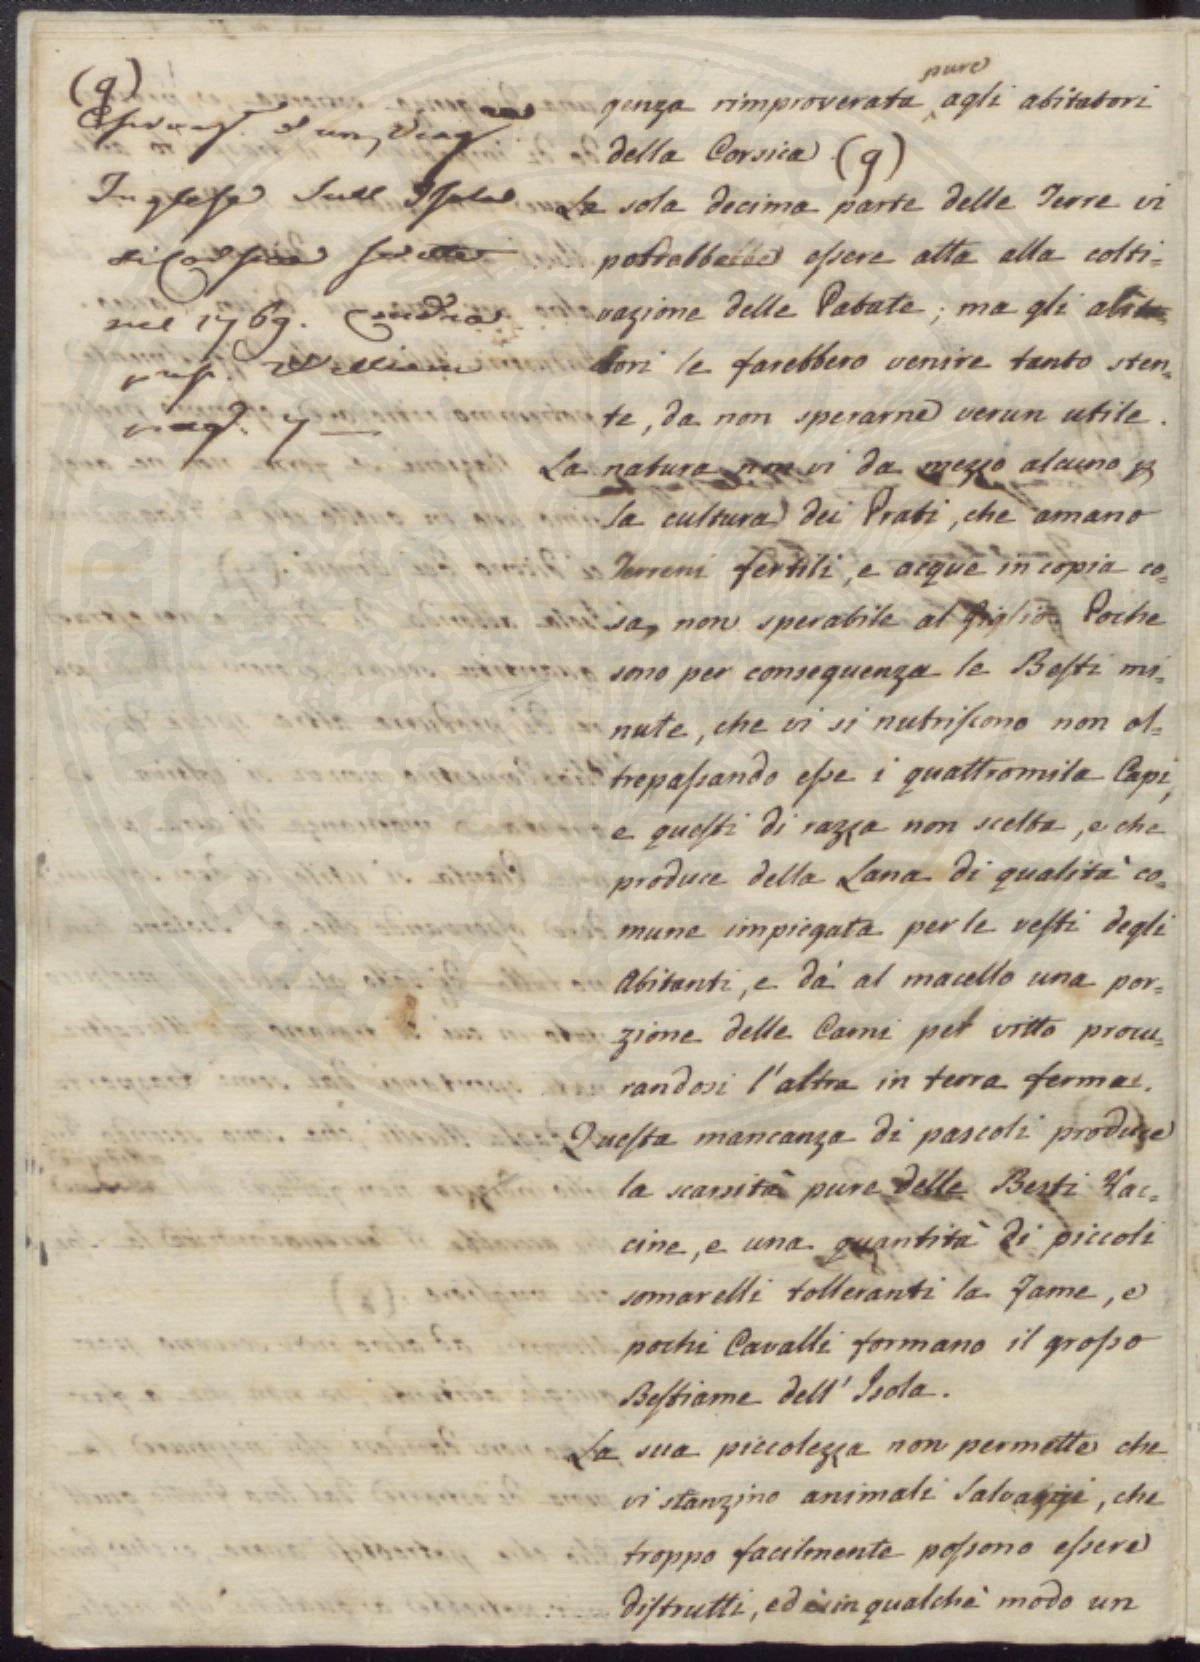 (q)
Osservaz. d'un Viag.
Inglese sull'Isola
di Corsica scritte
nel 1769. Londra
pag. 7
pure
genza rimproverata agli abitatori
della Corsica (q)
La sola decima parte delle Terre vi
potrebbe eſsere atta alla colti=
vazione delle Patate; ma gli abita=
tori le farebbero venire tanto sten=
te, da non sperarne verun utile.
La natura non vi da mezzo alcuno p
la cultura dei Prati, che amano
Terreni fertili, e acque in copia co=
sa, non sperabile al Giglio. Poche
sono per conseguenza le Beſti mi=
nute, che vi si nutriſcono non ol=
trepaſsando eſse i quattromila Capi,
e queſti di razza non scelta, e che
produce della Lana di qualità co=
mune impiegata per le veſti degli
Abitanti, e dà al macello una por=
zione delle Carni pel vitto procu=
randosi l'altra in terra ferma.
Queſta mancanza di pascoli produce
la scarsità pure delle Besti Vac=
cine, e una quantità di piccoli
somarelli tolleranti la fame, e
pochi Cavalli formano il groſso
Beſtiame dell'Isola.
La sua piccolezza non permette che
vi stanzino animali Salvaggi, che
troppo facilmente poſsono eſsere
diſtrutti, ed è in qualche modo un